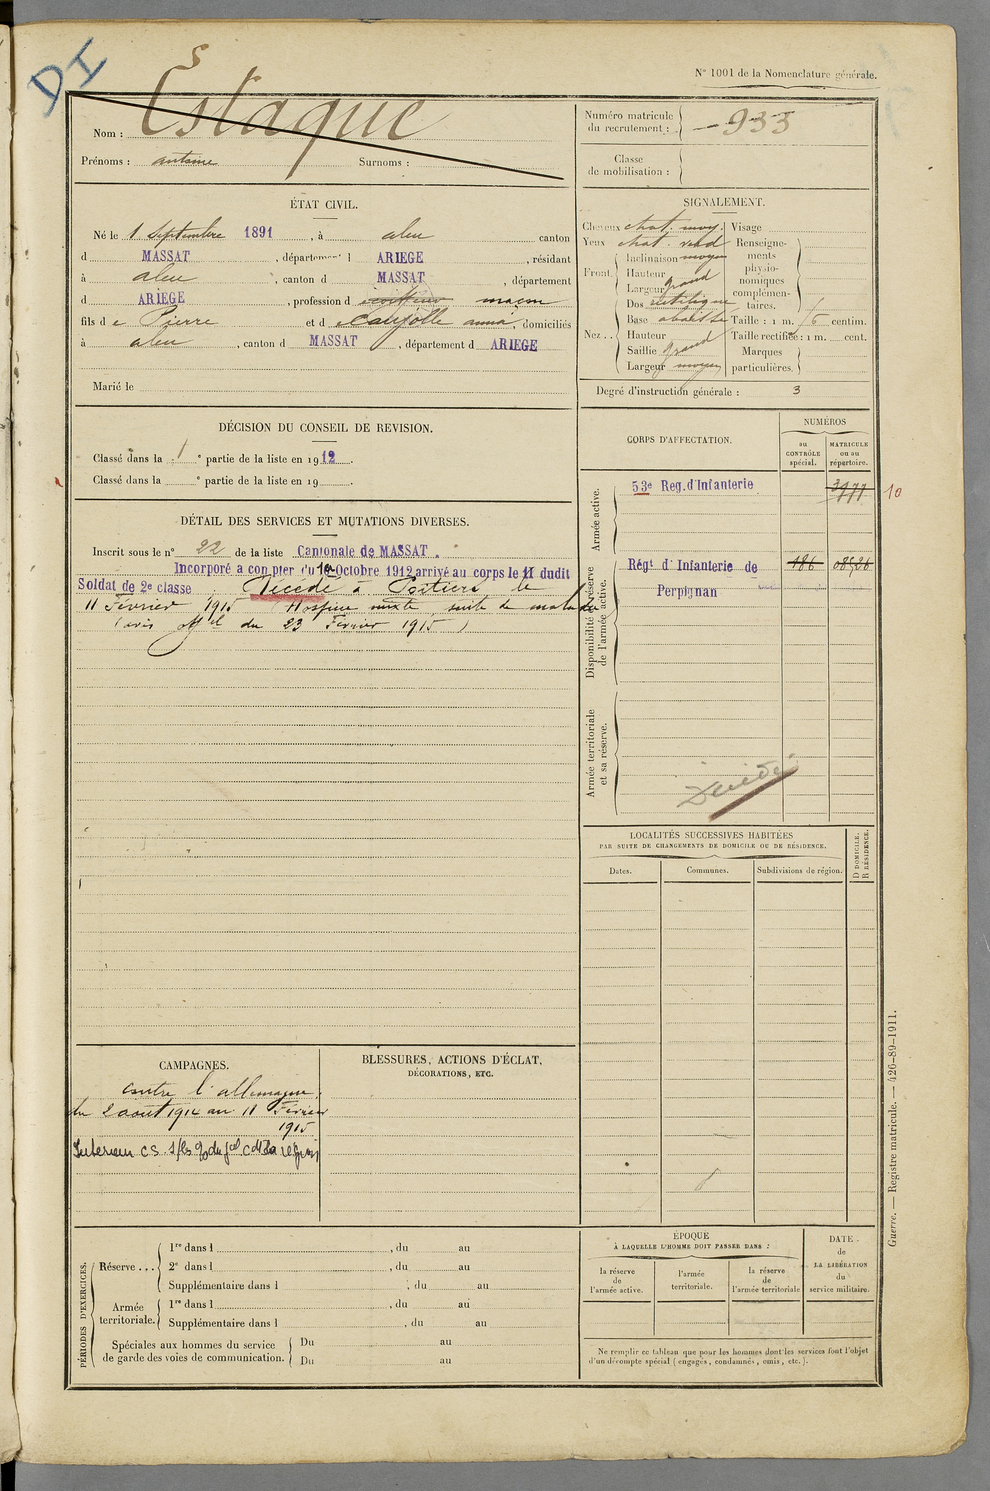 DI
N° 1001 de la Nomenclature générale.
Nom : Estaque
Prénoms : antoine Surnoms :
Numéro matricule du recrutement : 933
Classe de mobilisation :
ÉTAT CIVIL.
Né le 1 Septembre 1891, à aleu canton
d MASSAT, département d ARIEGE, résidant
à aleu, canton d MASSAT, département
d ARIEGE, profession d coiffeur maçon
fils de Pierre et de Caujolle anna, domiciliés
à aleu, canton d MASSAT, département d ARIEGE
Marié le
SIGNALEMENT.
Cheveux chat. moy. Visage
Yeux chat. verd Renseigne-
Front. Inclinaison moyen ments
Hauteur physio-
Largeur grand nomiques
complémen-
Nez .. Dos rectiligne taires.
Base abaissée Taille : 1 m. 6 centim.
Hauteur Taille rectifiée : 1 m. cent.
Saillie grand Marques
Largeur moyen particulières.
Degré d'instruction générale : 3
DÉCISION DU CONSEIL DE REVISION.
Classé dans la 1e partie de la liste en 1912.
Classé dans la e partie de la liste en 19 .
CORPS D'AFFECTATION.
NUMÉROS
au CONTRÔLE spécial.
MATRICULE ou au répertoire.
Armée active.
53e Reg. d'Infanterie 3977 10
Disponibilité et réserve de l'armée active.
Régt d'Infanterie de 186 08526
Perpignan
Armée territoriale et sa réserve.
Décédé
DÉTAIL DES SERVICES ET MUTATIONS DIVERSES.
Inscrit sous le n° 22 de la liste Cantonale de MASSAT.
Incorporé a compter du 10 Octobre 1912 arrivé au corps le 11 dudit
Soldat de 2e classe Décédé à Poitiers le
11 Février 1915 Hospice mixte suite de maladie
(avis offel du 23 Février 1915)
LOCALITÉS SUCCESSIVES HABITÉES
PAR SUITE DE CHANGEMENTS DE DOMICILE OU DE RÉSIDENCE.
Dates. Communes. Subdivisions de région. D DOMICILE. R RÉSIDENCE.
CAMPAGNES.
contre l'allemagne
du 2 août 1914 au 11 Février
1915
Intérieur CS
BLESSURES, ACTIONS D'ÉCLAT,
DÉCORATIONS, ETC.
PÉRIODES D'EXERCICES.
Réserve ... 1re dans l , du au
2e dans l , du au
Supplémentaire dans l , du au
Armée territoriale. 1re dans l , du au
Supplémentaire dans l , du au
Spéciales aux hommes du service Du au
de garde des voies de communication. Du au
ÉPOQUE
À LAQUELLE L'HOMME DOIT PASSER DANS :
la réserve de l'armée active.
l'armée territoriale.
la réserve de l'armée territoriale
DATE de LA LIBÉRATION du service militaire.
Ne remplir ce tableau que pour les hommes dont les services font l'objet
d'un décompte spécial (engagés, condamnés, omis, etc.).
Guerre. — Registre matricule. — 426-89-1911.